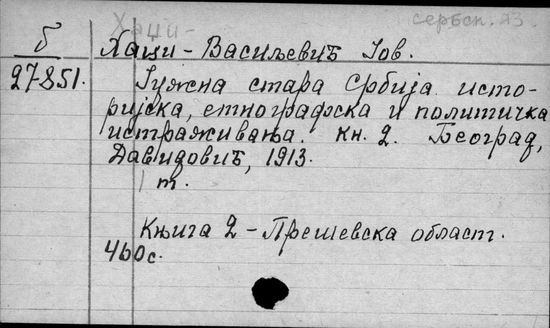 Хаци-
сербск. яз.
б
27851.
Хаци-Васиљевић Јов.
Јужна стара Србија. исто-
ријска, етнографска и политичка
истраживања. Кн. 2. Београд,
Давидовић, 1913.
1 т.
Књига 2 - Прешевска област.
460 с.